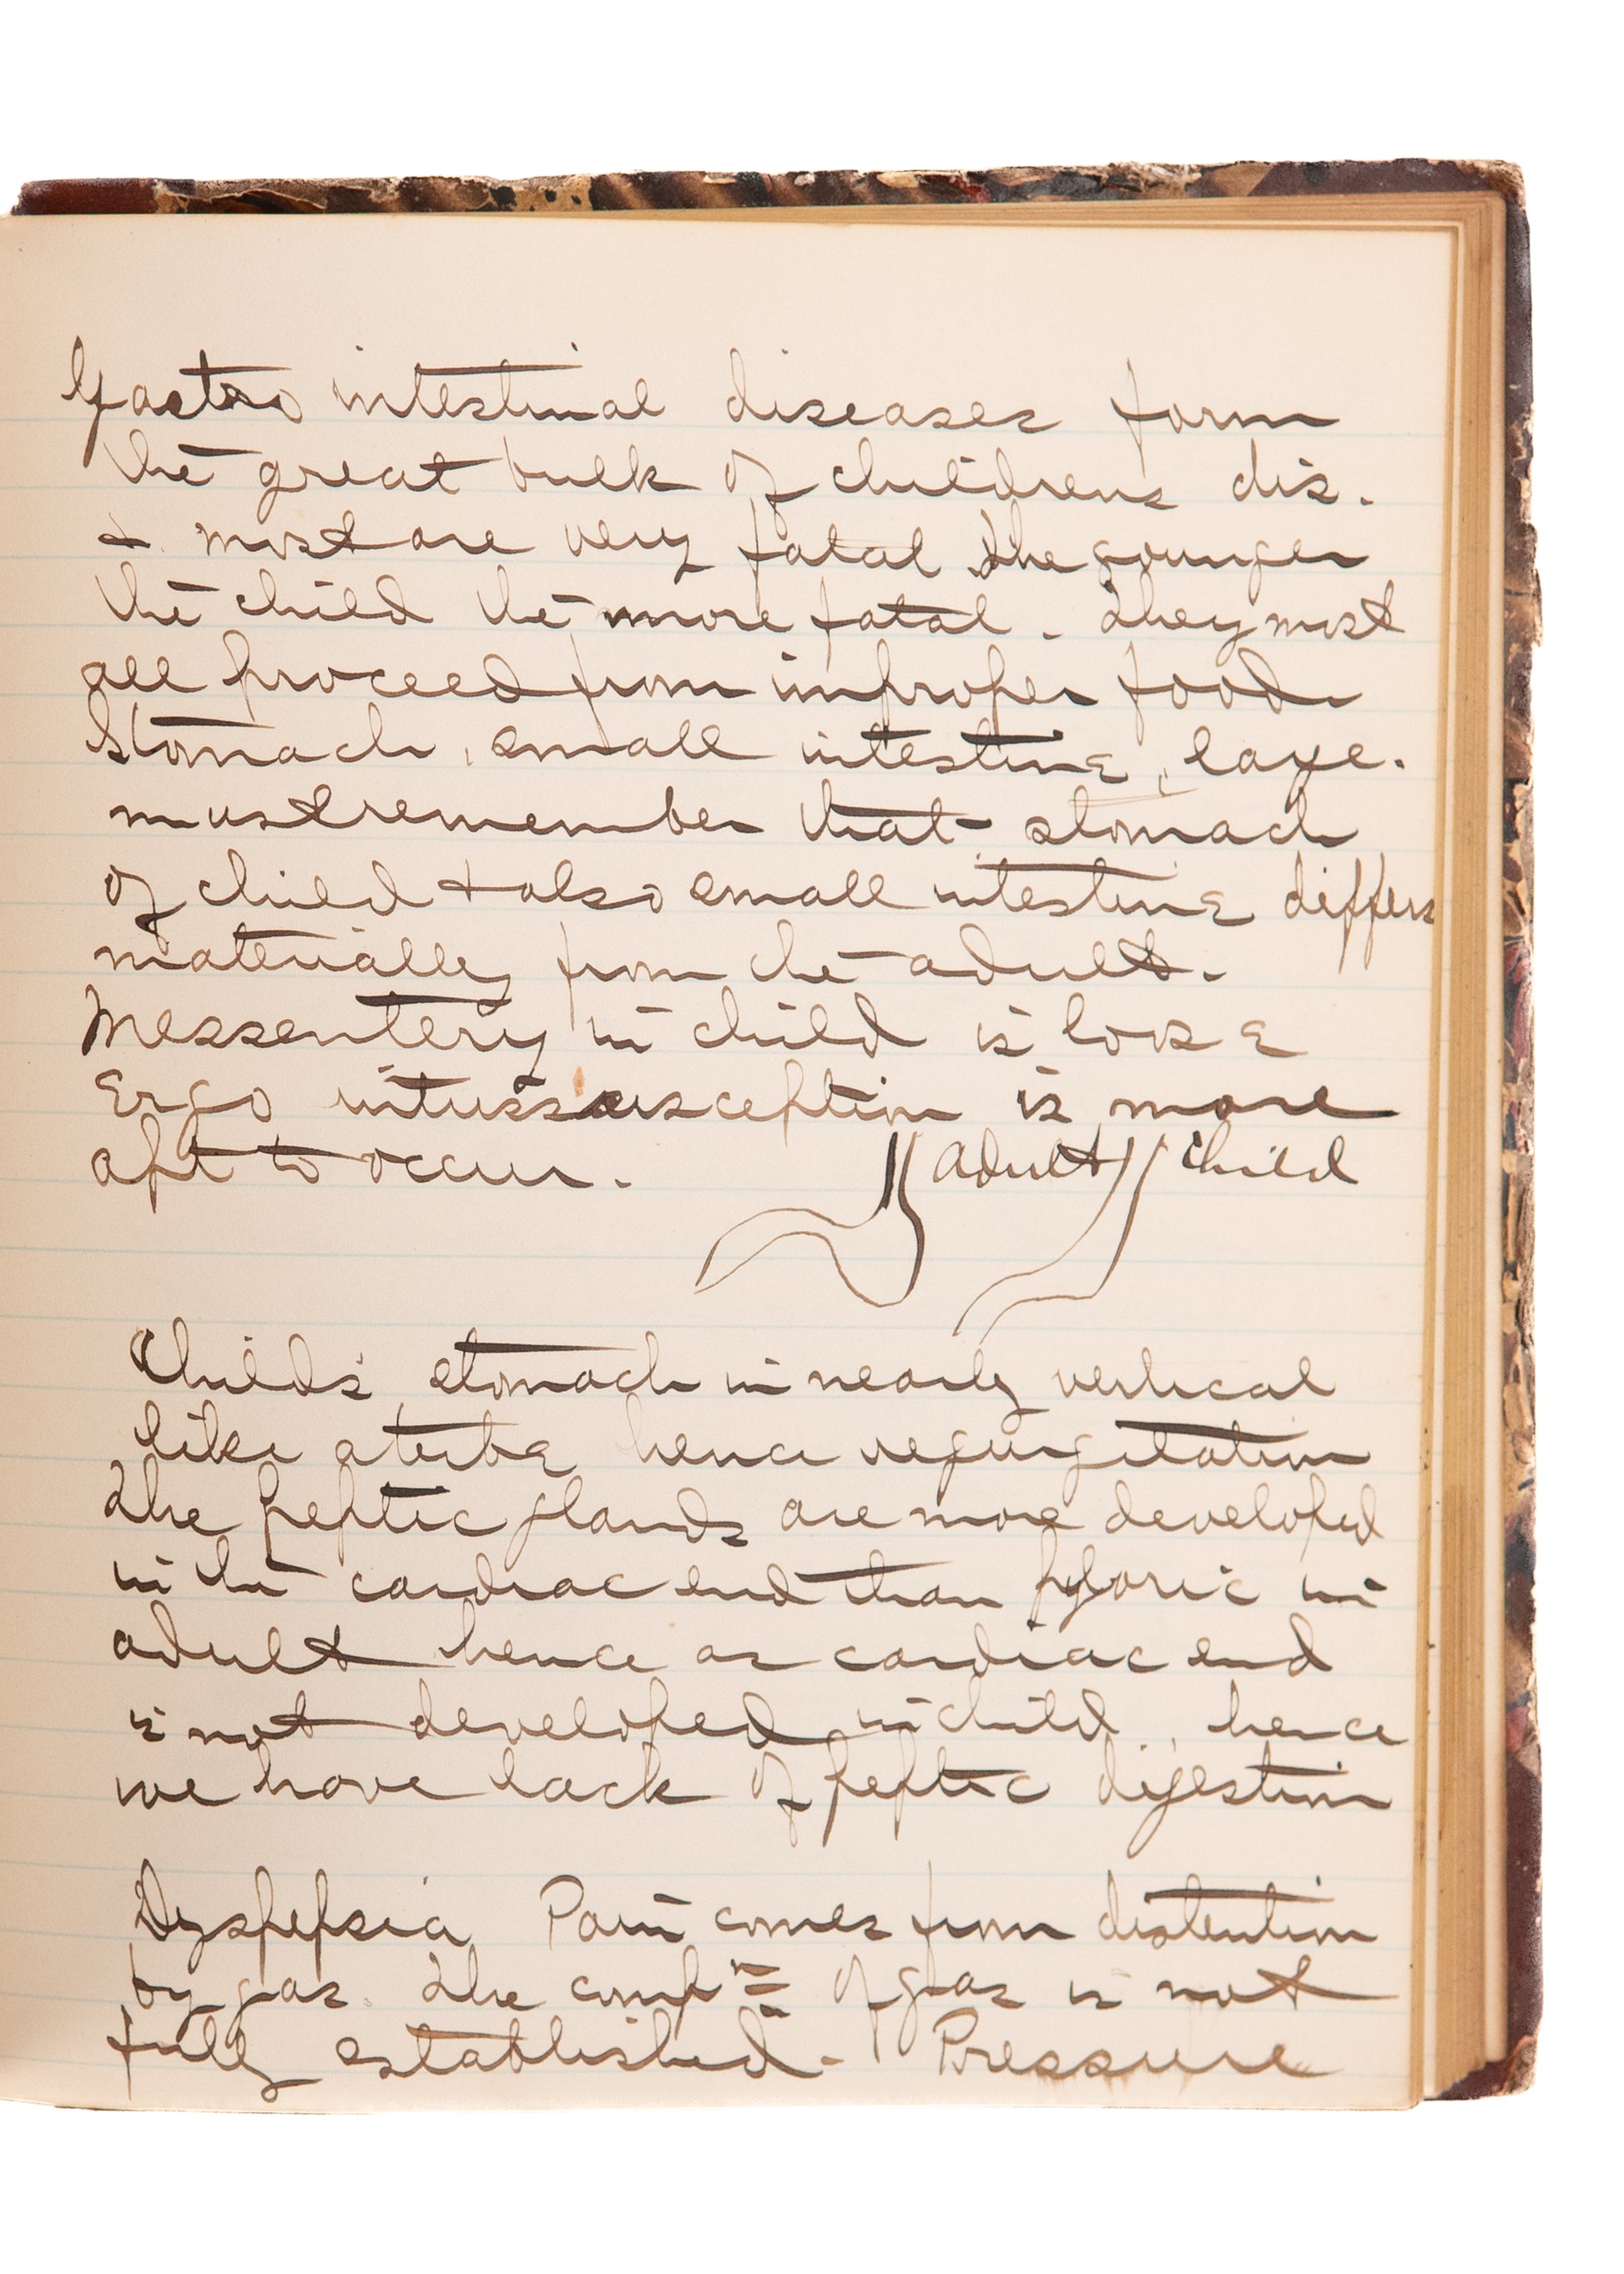 Gastro intestinal diseases form
the great bulk of childrens dis.
+ most are very fatal the younger
the child the more fatal. They most
all proceed from improper food
Stomach, small intestine, large.
must remember that stomach
of child + also small intestine differs
materially from the adult.
Messentery in child is loose
Ergo intussusception is more
apt to occur.
adult child
Childs stomach in nearly vertical
like a tube hence regurgitation
The peptic glands are more developed
in the cardiac end than pyloric in
adult hence as cardiac end
is not developed in child, hence
we have lack of peptic digestion
Dyspepsia Pain comes from distention
by gas. The comp<sup>n</sup> of gas is not
fully established. Pressure